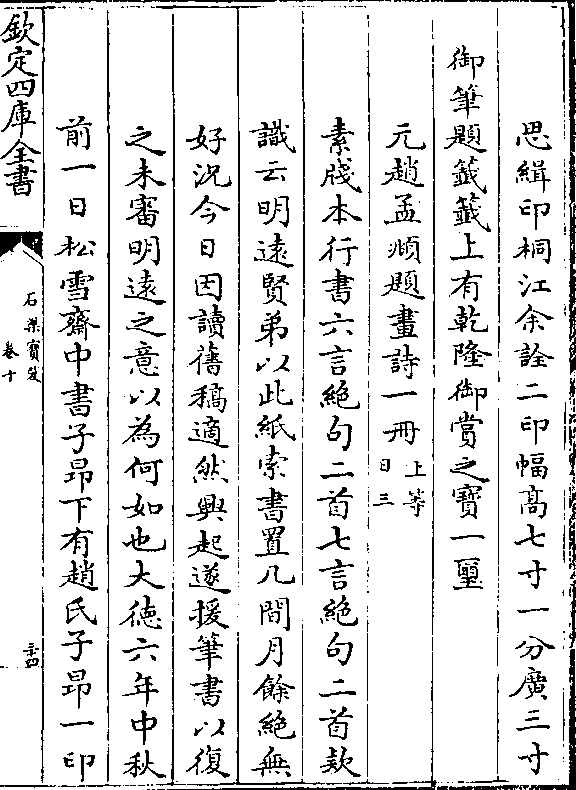 思緝印桐江余詮二印幅高七寸一分廣三寸
御筆題籤籤上有乾隆御賞之寶一璽
元趙孟頫題畫詩一冊上等日三
素牋本行書六言絶句二首七言絶句二首款
識云明遠賢弟以此紙索書置几間月餘絶無
好況今日因讀舊稿適然興起遂援筆書以復
之未審明遠之意以為何如也大徳六年中秋
前一日松雪齋中書子昂下有趙氏子昂一印
欽定四庫全書
石渠寶笈
卷十
三十四